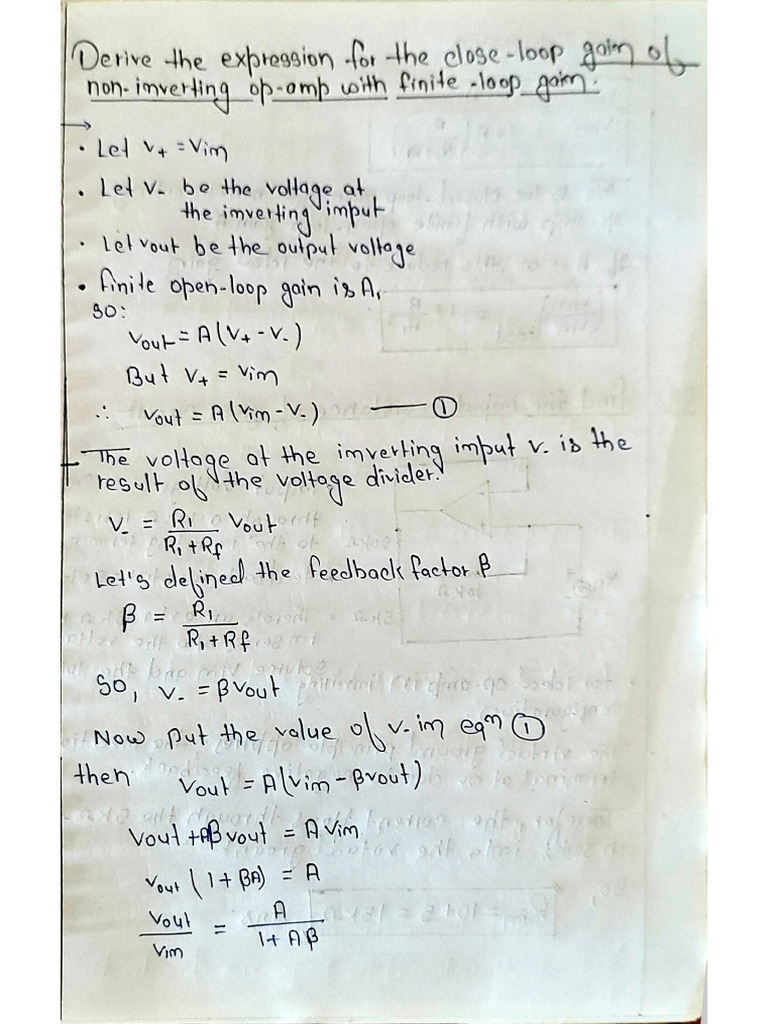 Derive the expression for the close-loop gain of
non-inverting op-amp with finite-loop gain.
→
• Let V+ = Vin
• Let V- be the voltage at
the inverting input
• Let vout be the output voltage
• finite open-loop gain is A,
so:
Vout = A(V+ - V-)
But V+ = Vin
∴ Vout = A(Vin - V-) —— ①
The voltage at the inverting input V- is the
result of the voltage divider.
V- = R1 / (R1 + Rf) Vout
Let's defined the feedback factor β
β = R1 / (R1 + Rf)
So, V- = βVout
Now put the value of V- in eqn ①
then Vout = A(Vin - βVout)
Vout + Aβ Vout = A Vin
Vout (1 + βA) = A
Vout / Vin = A / (1 + Aβ)